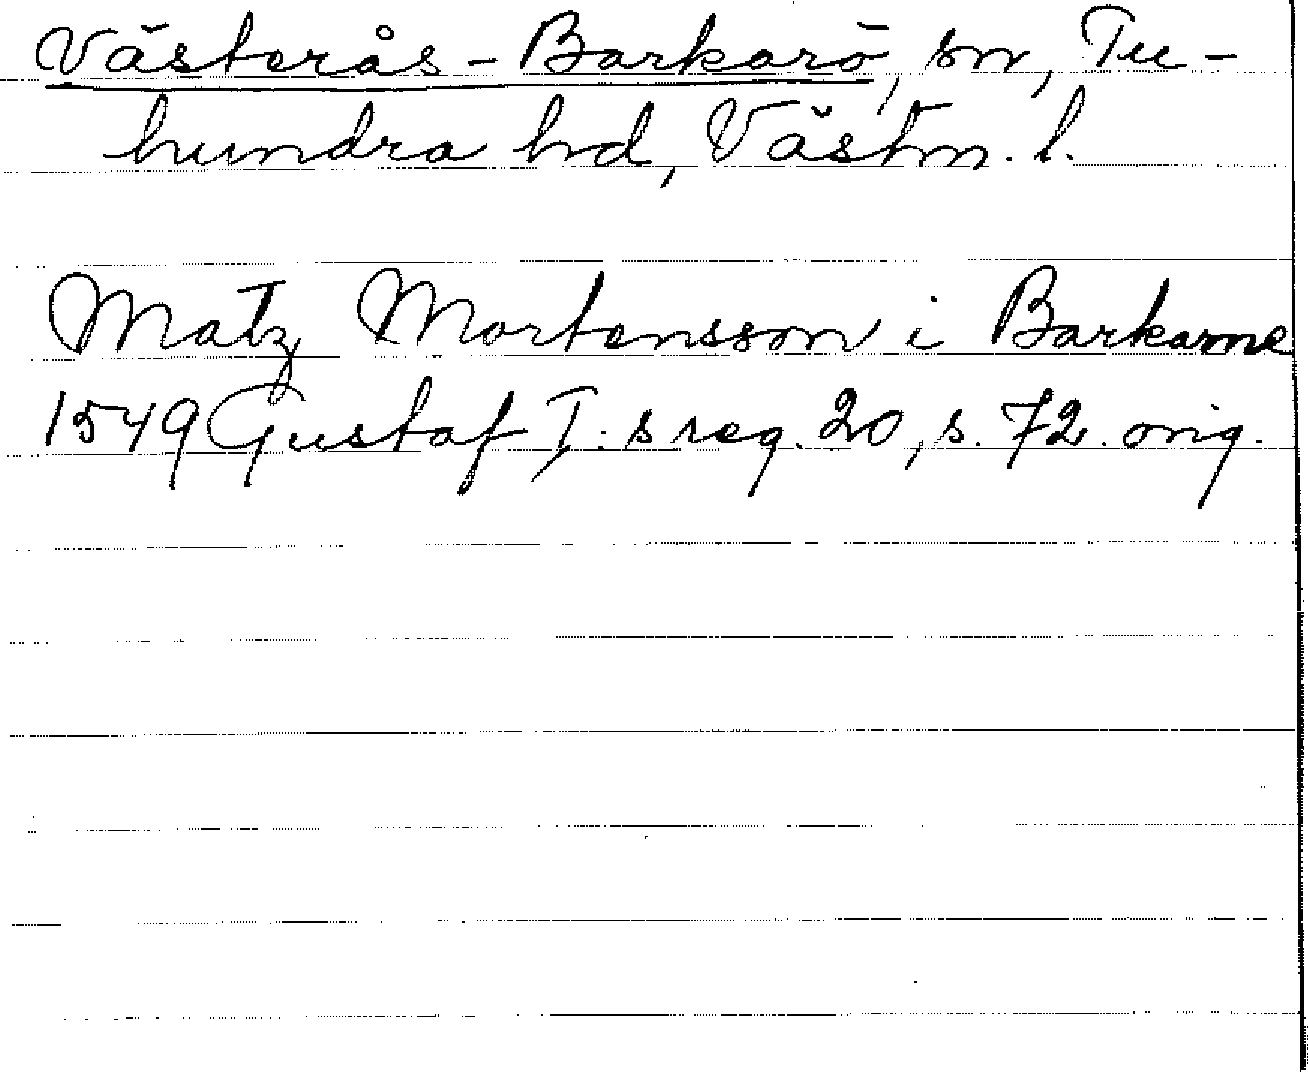 Västerås-Barkarö, sn, Tu-
hundra hd, Västm. l.
Matz Mortensson i Barkarne
1549 Gustaf I:s reg. 20, s. 72. orig.